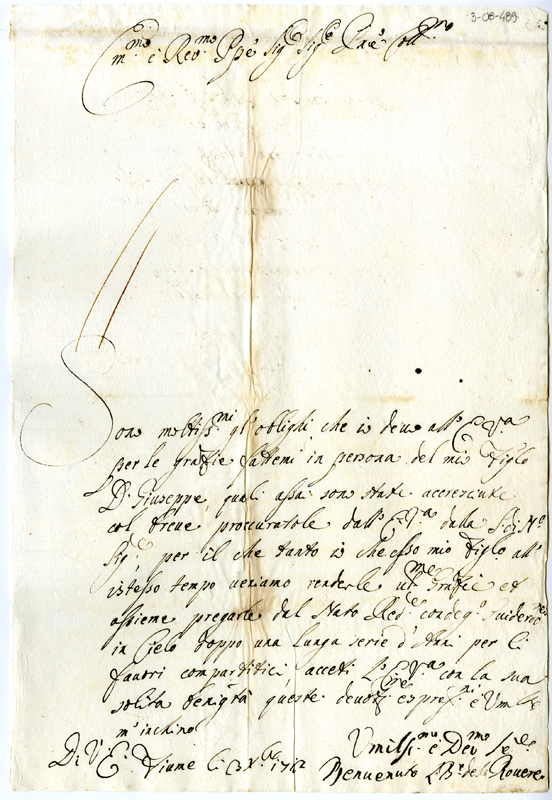 3-08-489
Em.mo e Rev.mo Ppe Sig.e Sig.e Pne Coll.mo
Sono moltiss.mi gl'oblighi che io devo all'E. V.a
per le grazie fattemi in persona del mio Figlo
D. Giuseppe, quali assai sono state accresciute
col breve proccuratole dall'E. V.a dalla S.tà di N.o
Sig.e, per il che tanto io che esso mio Figlo all'
istesso tempo veniamo renderle um.me Grazie et
assieme pregarle dal Nato Red.e condeg.o guiderdone
in Cielo doppo una lunga serie d'Anni per li
favori compartitici, accetti l'E. V.a con la sua
solita benig.tà queste devote espres.ni e Um.te
m'inchino
Di V. E. Fiume li 3 X.bre 1712
Umilis.mo e Dev.mo Se.e
Benvenuto della Rovere